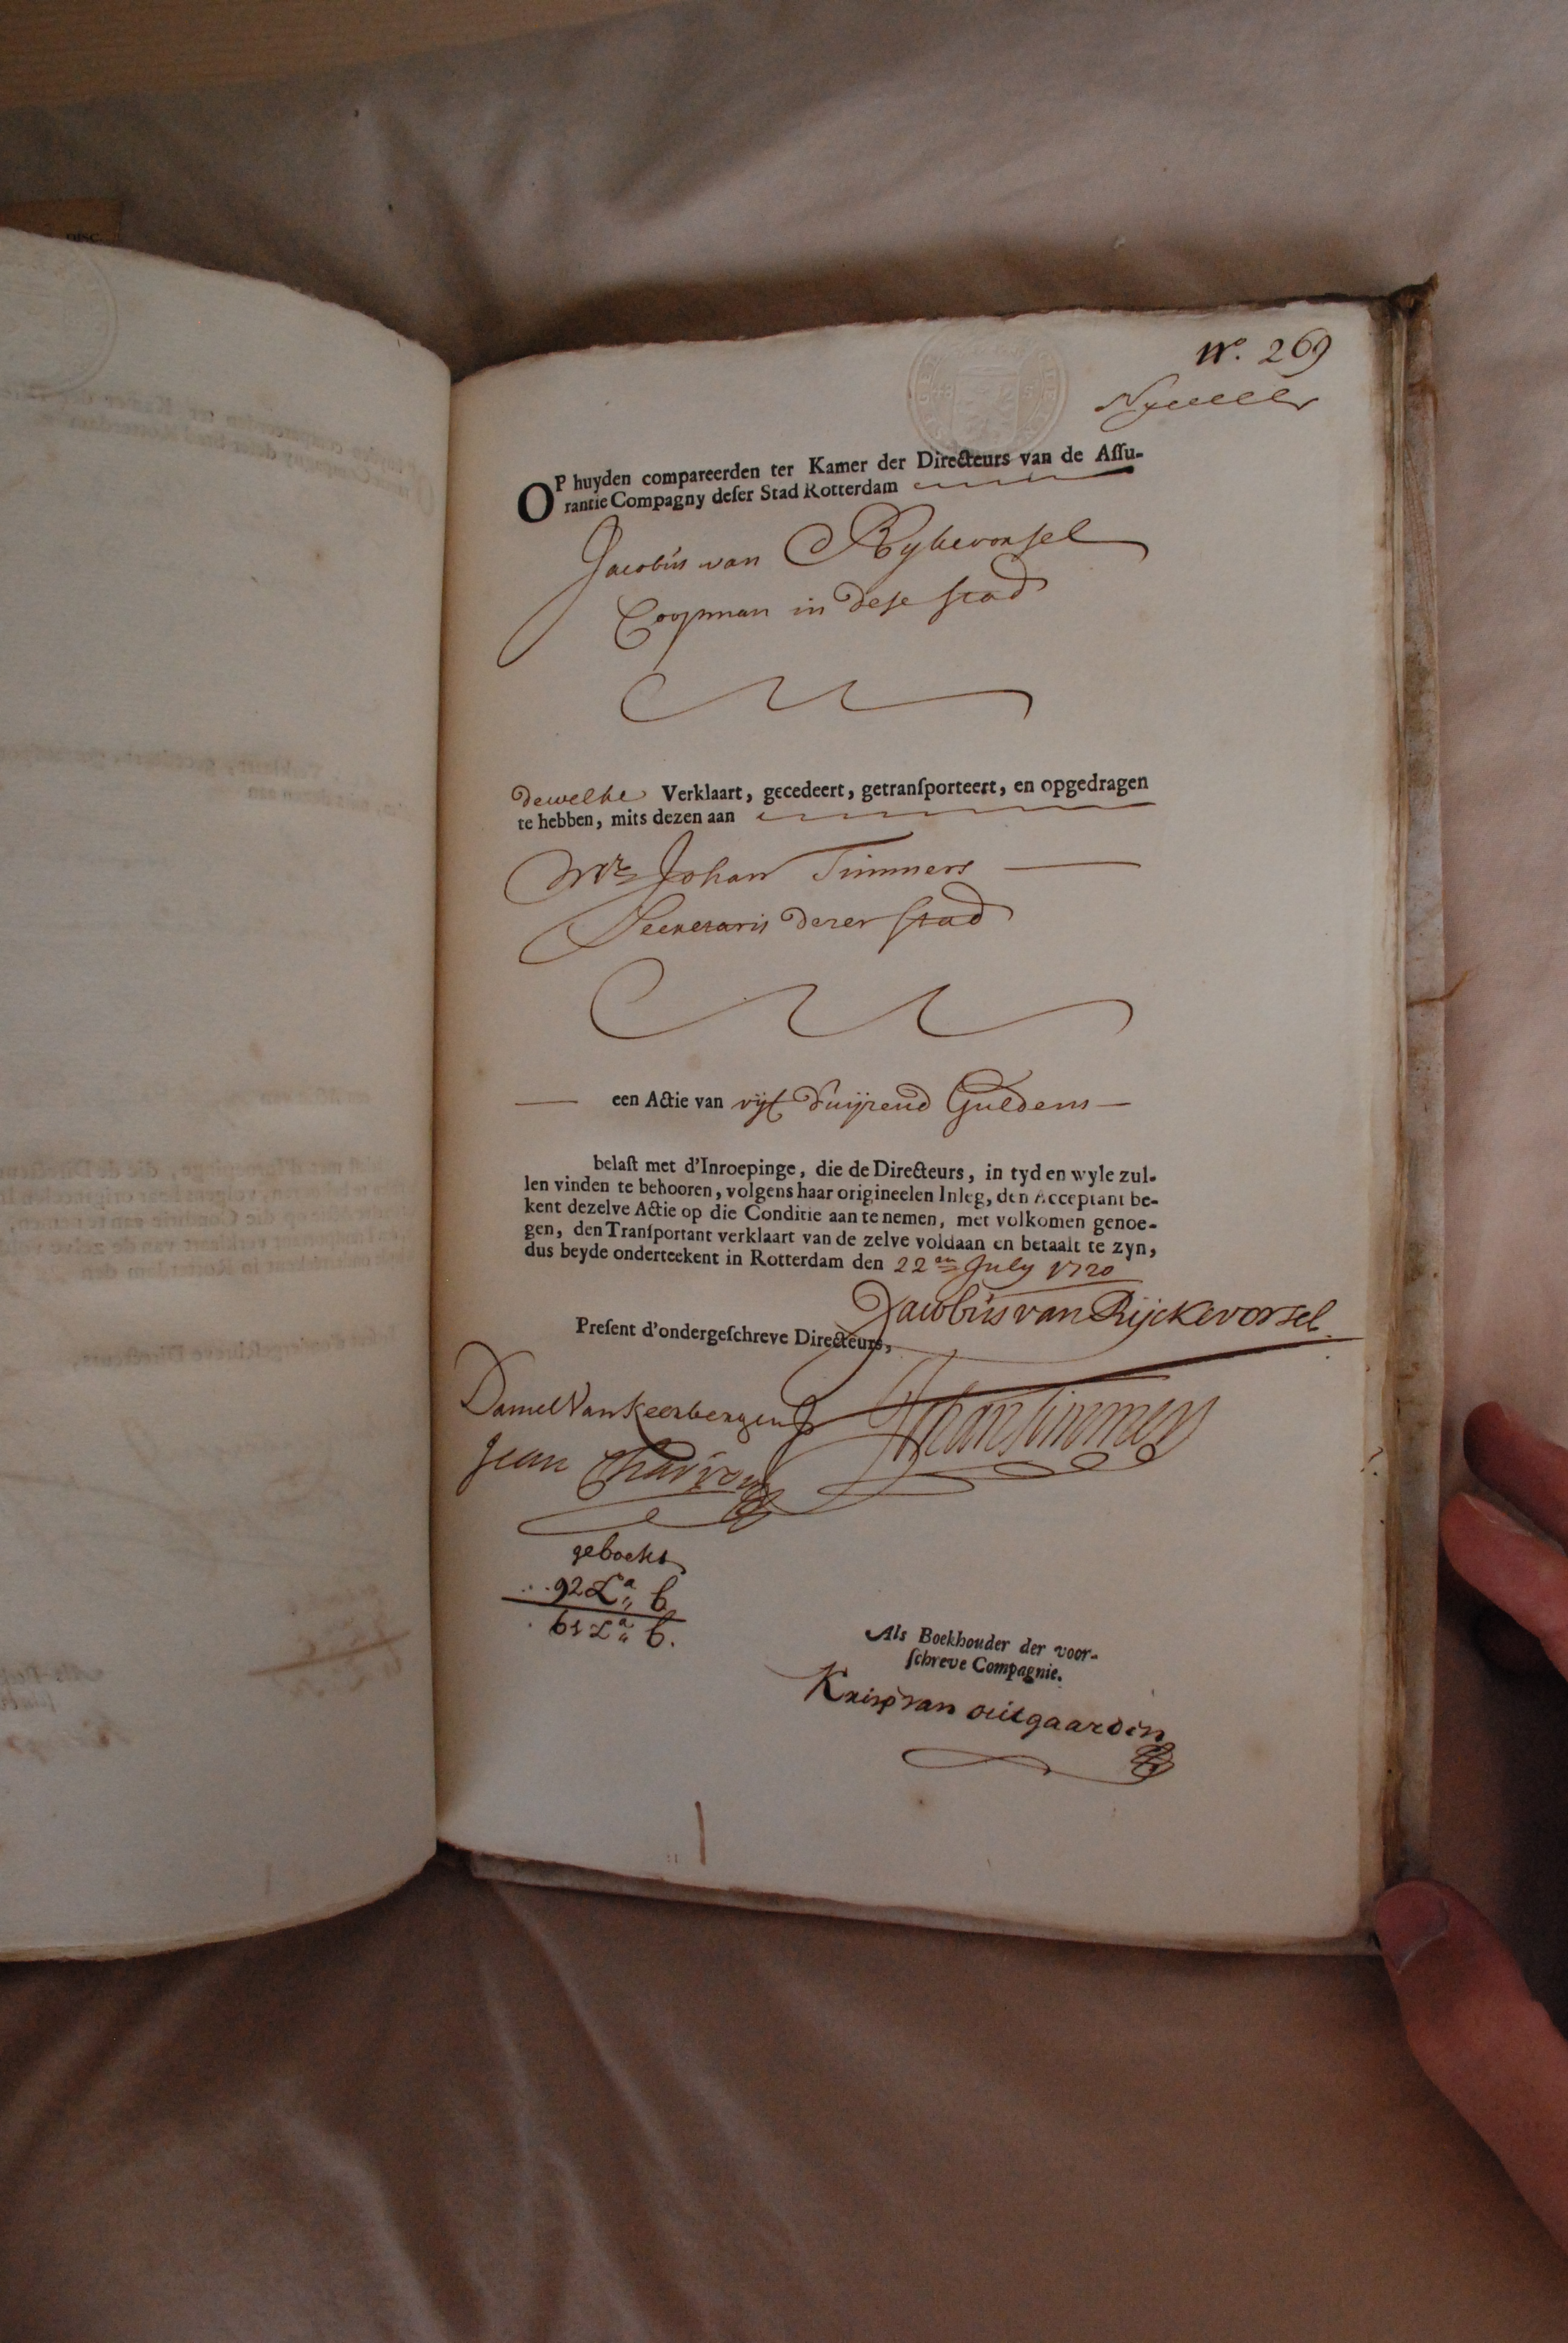 Nº. 269
OP huyden compareerden ter Kamer der Directeurs van de Assu-
rantie Compagny deser Stad Rotterdam
Jacobus van Rykevorsel
Coopman in dese stad
dewelke Verklaart, gecedeert, getransporteert, en opgedragen
te hebben, mits dezen aan
Mr Johan Timmers
Secretaris dezer stad
een Actie van vyf duijzend Guldens
belast met d'Inroepinge, die de Directeurs, in tyd en wyle zul-
len vinden te behooren, volgens haar origineelen Inleg, den Acceptant be-
kent dezelve Actie op die Conditie aan te nemen, met volkomen genoe-
gen, den Transportant verklaart van de zelve voldaan en betaalt te zyn,
dus beyde onderteekent in Rotterdam den 22en July 1720
Jacobus van Rijckevorsel
Present d'ondergeschreve Directeurs,
Daniel Van Keerbergen
Johan Timmers
Jean Charron
geboekt
92 La b
61 La b.
Als Boekhouder der voor-
schreve Compagnie.
van outgaarden